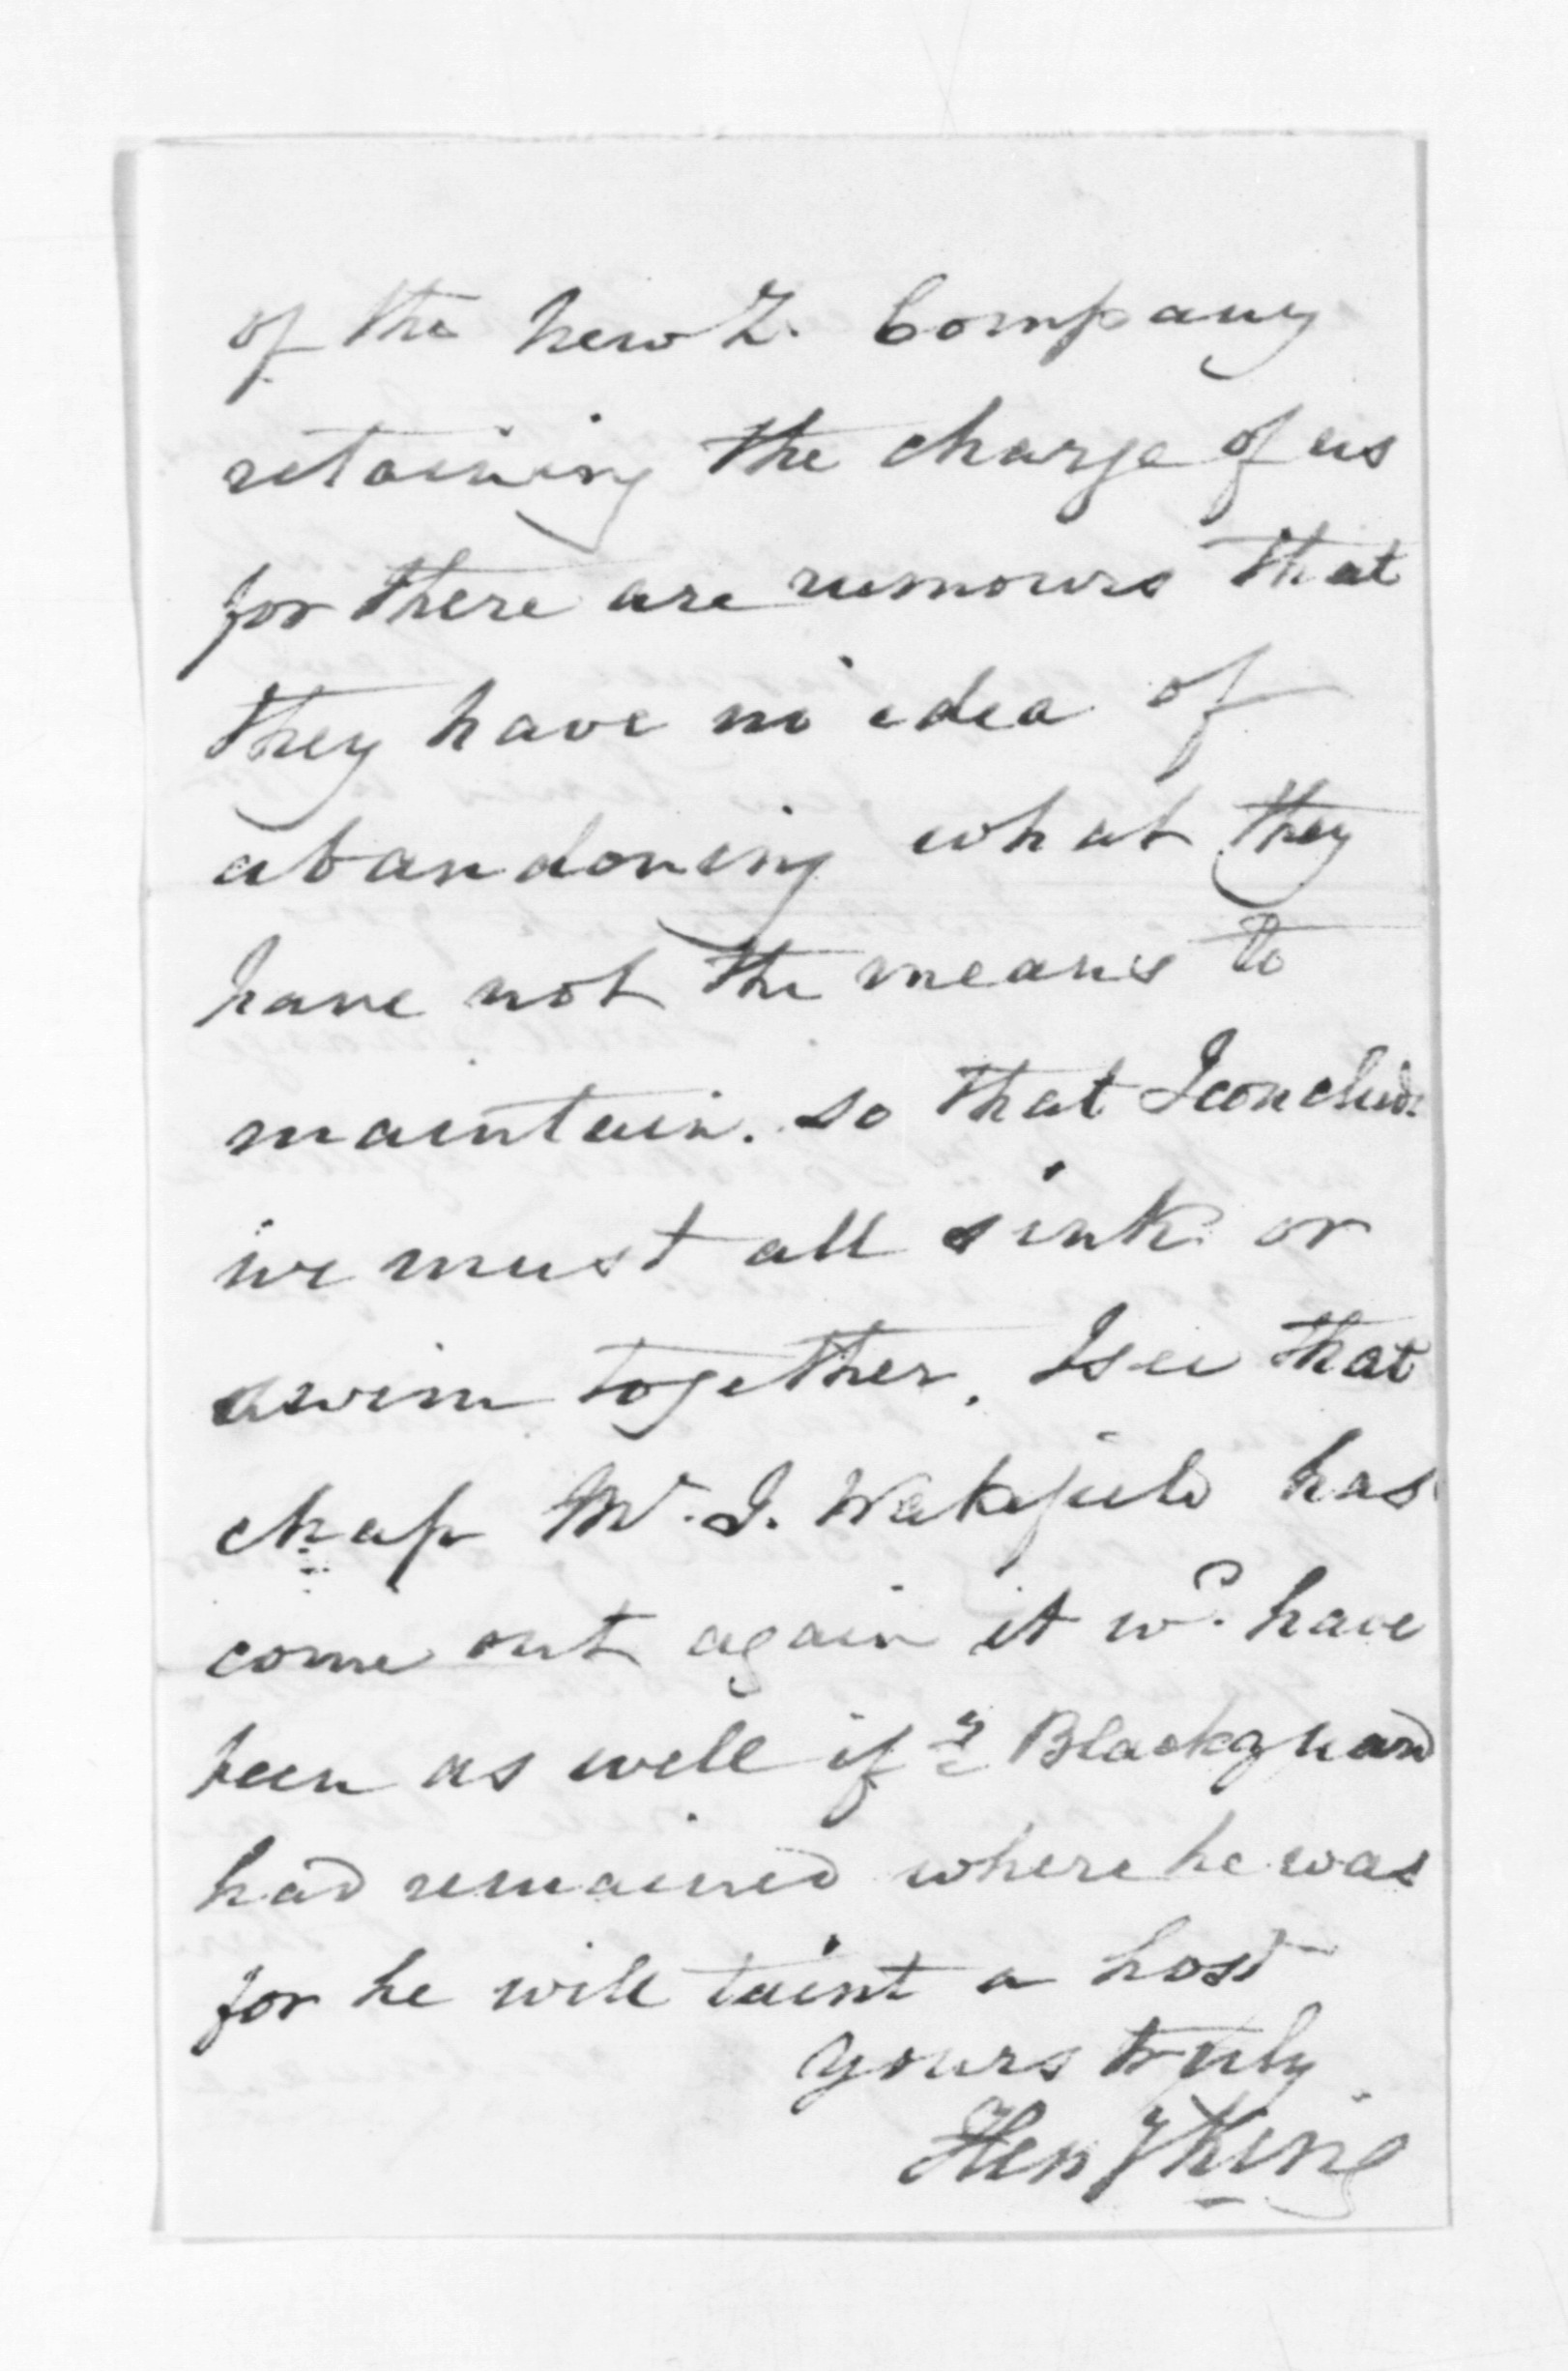 of the New Z. Company
retaining the charge of us
for there are rumours that
they have no idea of
abandoning what they
have not the means to
maintain. so that I conclude
we must all sink or
swim together. I see that
chap W. J. Wakefield has
come out again it wd. have
been as well if ye Blackguard
had remained where he was
for he will taint a host
yours truly
Heny King